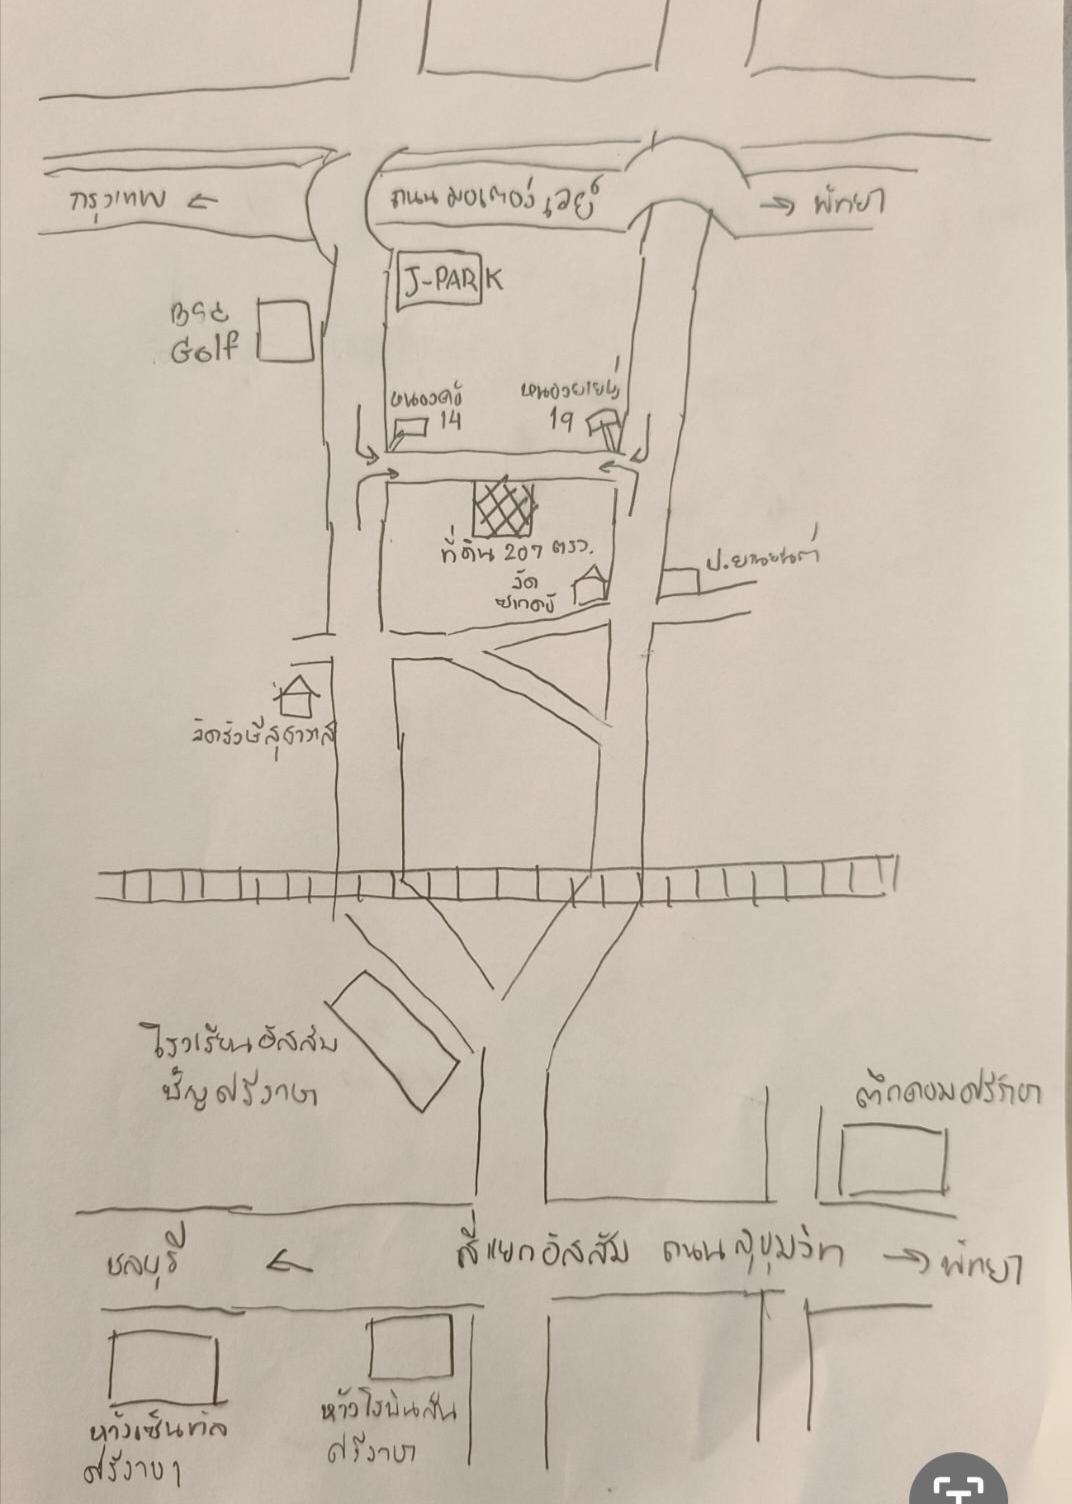 กรุงเทพ ←
ถนน มอเตอร์เวย์
→ พัทยา
J-PARK
Golf
หนองค้อ
14
19
ที่ดิน 207 ตรว.
วัด
วัดรังษีสุธาวาส
โรงเรียน อัสสัม
ชัญ ศรีราชา
ตึกคอมศรีราชา
ชลบุรี ←
สี่แยกอัสสัม ถนน สุขุมวิท → พัทยา
ห้างเซ็นทรัล
ศรีราชา
ห้างโรบินสัน
ศรีราชา